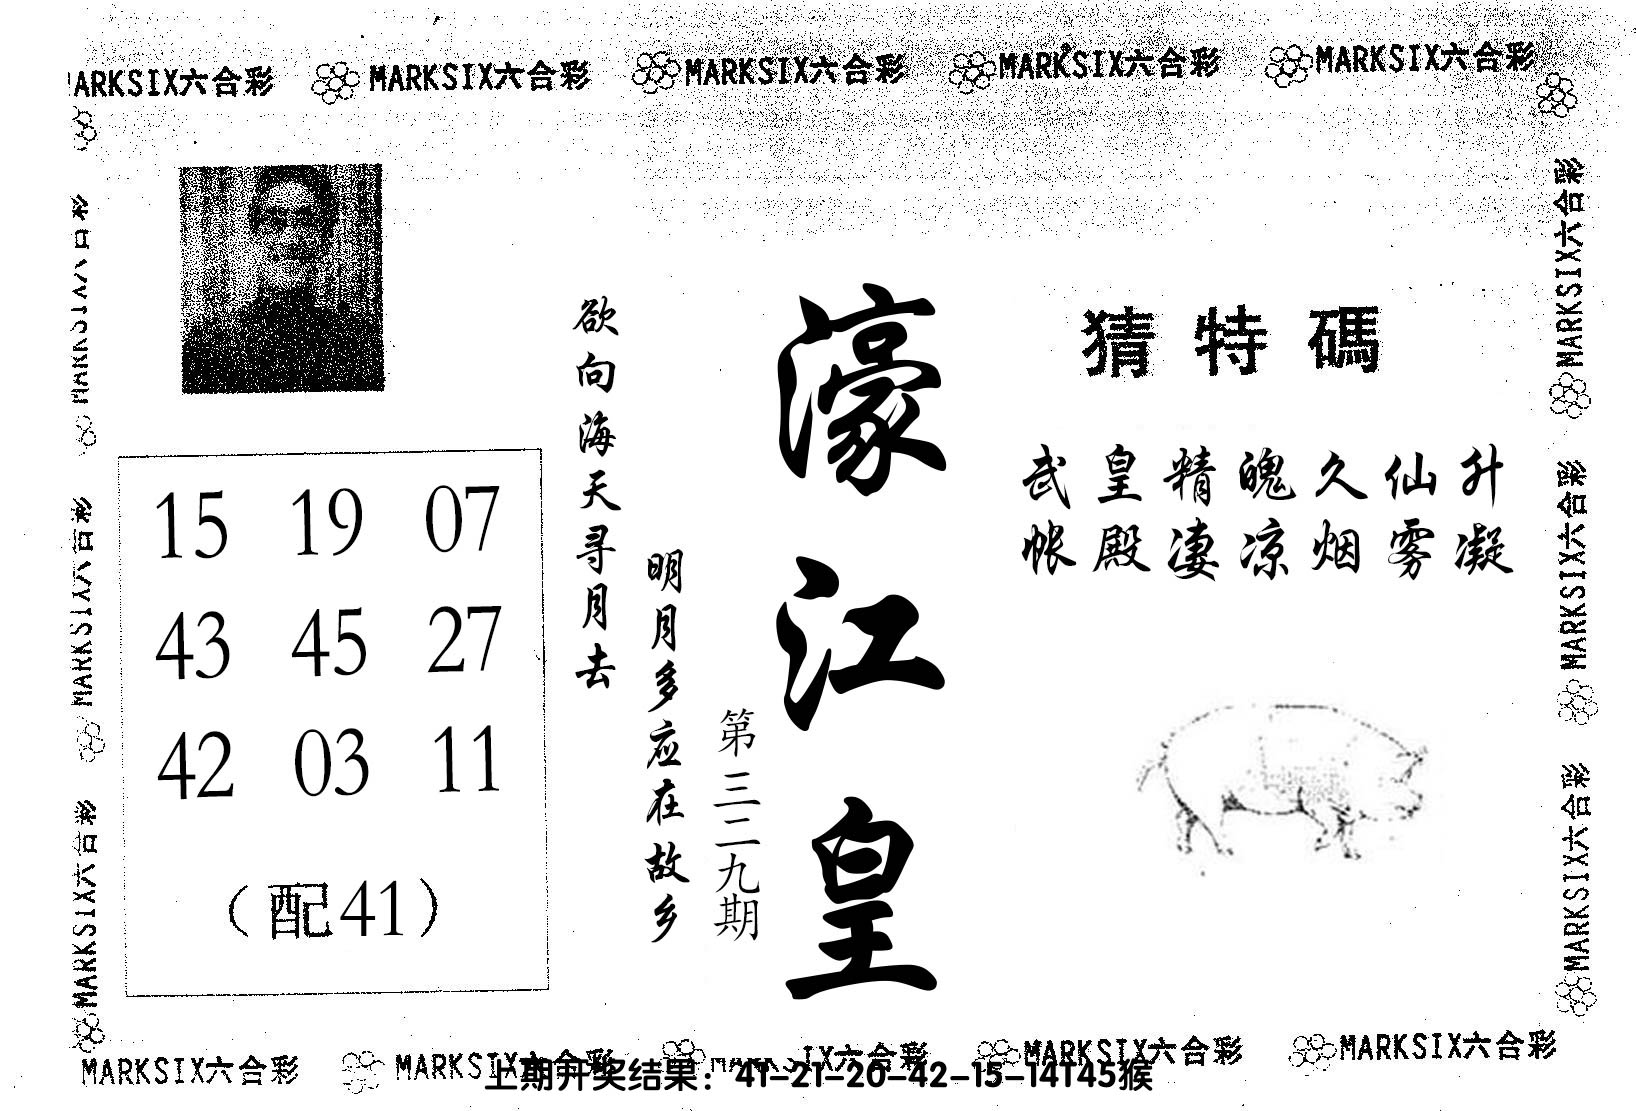 MARKSIX六合彩 MARKSIX六合彩 MARKSIX六合彩 MARKSIX六合彩 MARKSIX六合彩
猜特碼
武皇精魄久仙升
帐殿凄凉烟雾凝
濠江皇
第三二九期
明月多应在故乡
欲向海天寻月去
15 19 07
43 45 27
42 03 11
（配41）
MARKSIX六合彩
MARKSIX六合彩
MARKSIX六合彩
MARKSIX六合彩
MARKSIX六合彩
MARKSIX六合彩
MARKSIX六合彩 MARKSIX六合彩 MARKSIX六合彩 MARKSIX六合彩 MARKSIX六合彩
上期开奖结果：41-21-20-42-15-14T45猴